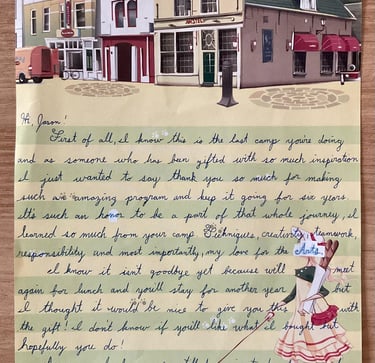 Hi, Jason!
First of all, I know this is the last camp you're doing
and as someone who has been gifted with so much inspiration
I just wanted to say thank you so much for making
such an amazing program and keep it going for six years.
It's such an honor to be a part of that whole journey, I
learned so much from your camp. Techniques, creativity, teamwork,
responsibility, and most importantly, my love for the arts.
I know it isn't goodbye yet because we'll meet
again for lunch and you'll stay for another year but
I thought it would be nice to give you this with
the gift! I don't know if you'll like what I bought but
hopefully you do!